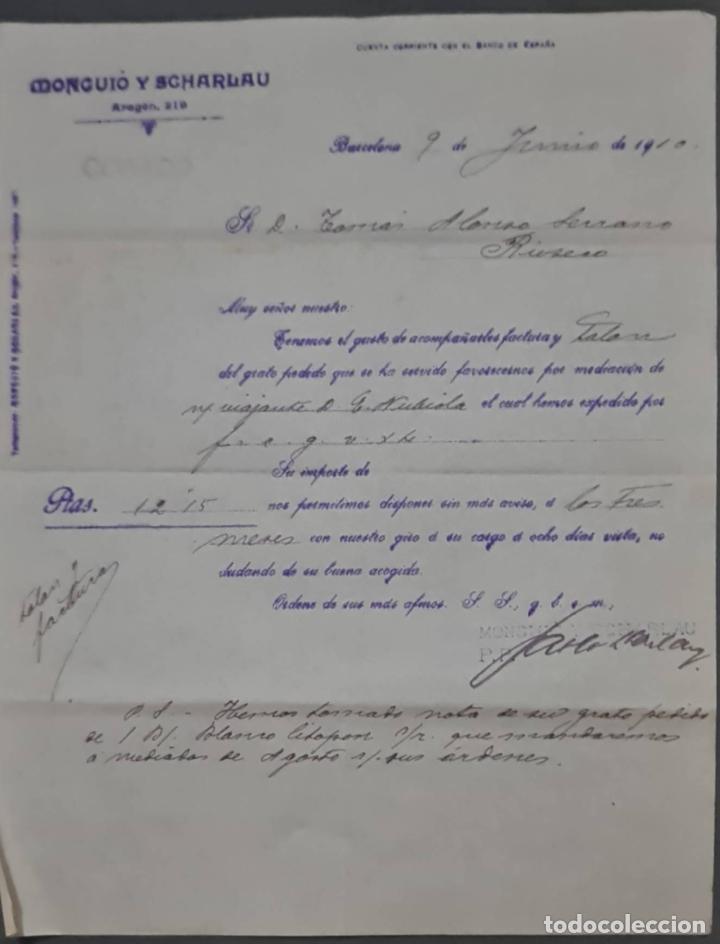 CUENTA CORRIENTE CON EL BANCO DE ESPAÑA
MONGUIÓ Y SCHARLAU
Aragón, 219
Barcelona 9 de Junio de 1910.
Sr. D. Tomás Alonso Serrano
Rioseco
Muy señor nuestro:
Tenemos el gusto de acompañarles factura y talon
del grato pedido que se ha servido favorecernos por mediación de
n/ viajante D. E. Nubiola el cual hemos expedido por
f. c. g. v.
Su importe de
Ptas. 12'15 nos permitimos disponer sin más aviso, á los tres
meses con nuestro giro á su cargo á ocho días vista, no
dudando de su buena acogida.
Ordene de sus más afmos. S. S., q. b. s. m.,
talon y
factura
MONGUIÓ Y SCHARLAU
P.P.
P. S. - Hemos tomado nota de su grato pedido
de 1 B/. Blanco litopon s/r. que mandaremos
á mediados de Agosto s/. sus órdenes.
todocoleccion